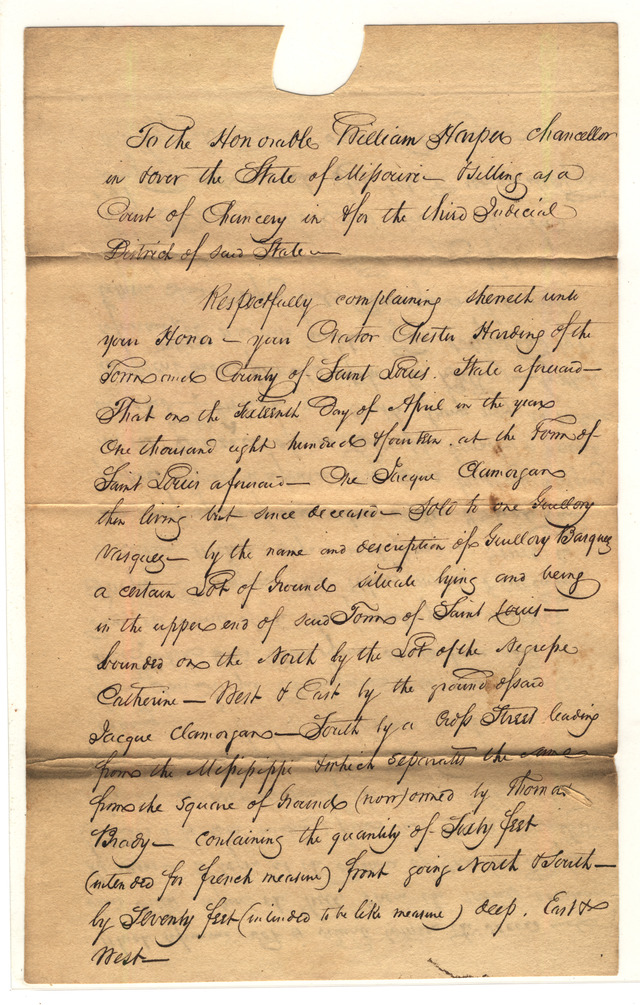 To the Honorable William Harper Chancellor
in & over the State of Missouri — Sitting as a
Court of Chancery in & for the third Judicial
District of said State —
Respectfully complaining sheweth unto
your Honor — your Orator Chester Harding of the
Town and County of Saint Louis. State aforesaid —
That on the sixteenth Day of April in the year
One thousand eight hundred & fourteen. at the Town of
Saint Louis aforesaid — One Jacque Clamorgan
then living but since deceased — Sold to one Guillory
Vasquez — by the name and description of Guillory Basquez
a certain Lot of Ground situate lying and being
in the upper end of said Town of Saint Louis —
bounded on the North by the Lot of the Negresse
Catherine — West & East by the ground of said
Jacque Clamorgan — South by a Cross Street leading
from the Missisippi & which separates the same
from the square of Ground (now) owned by Thomas
Brady — containing the quantity of Sixty feet
(intended for french measure) front going North & South —
by Seventy feet (intended to be like measure) deep. East &
West —